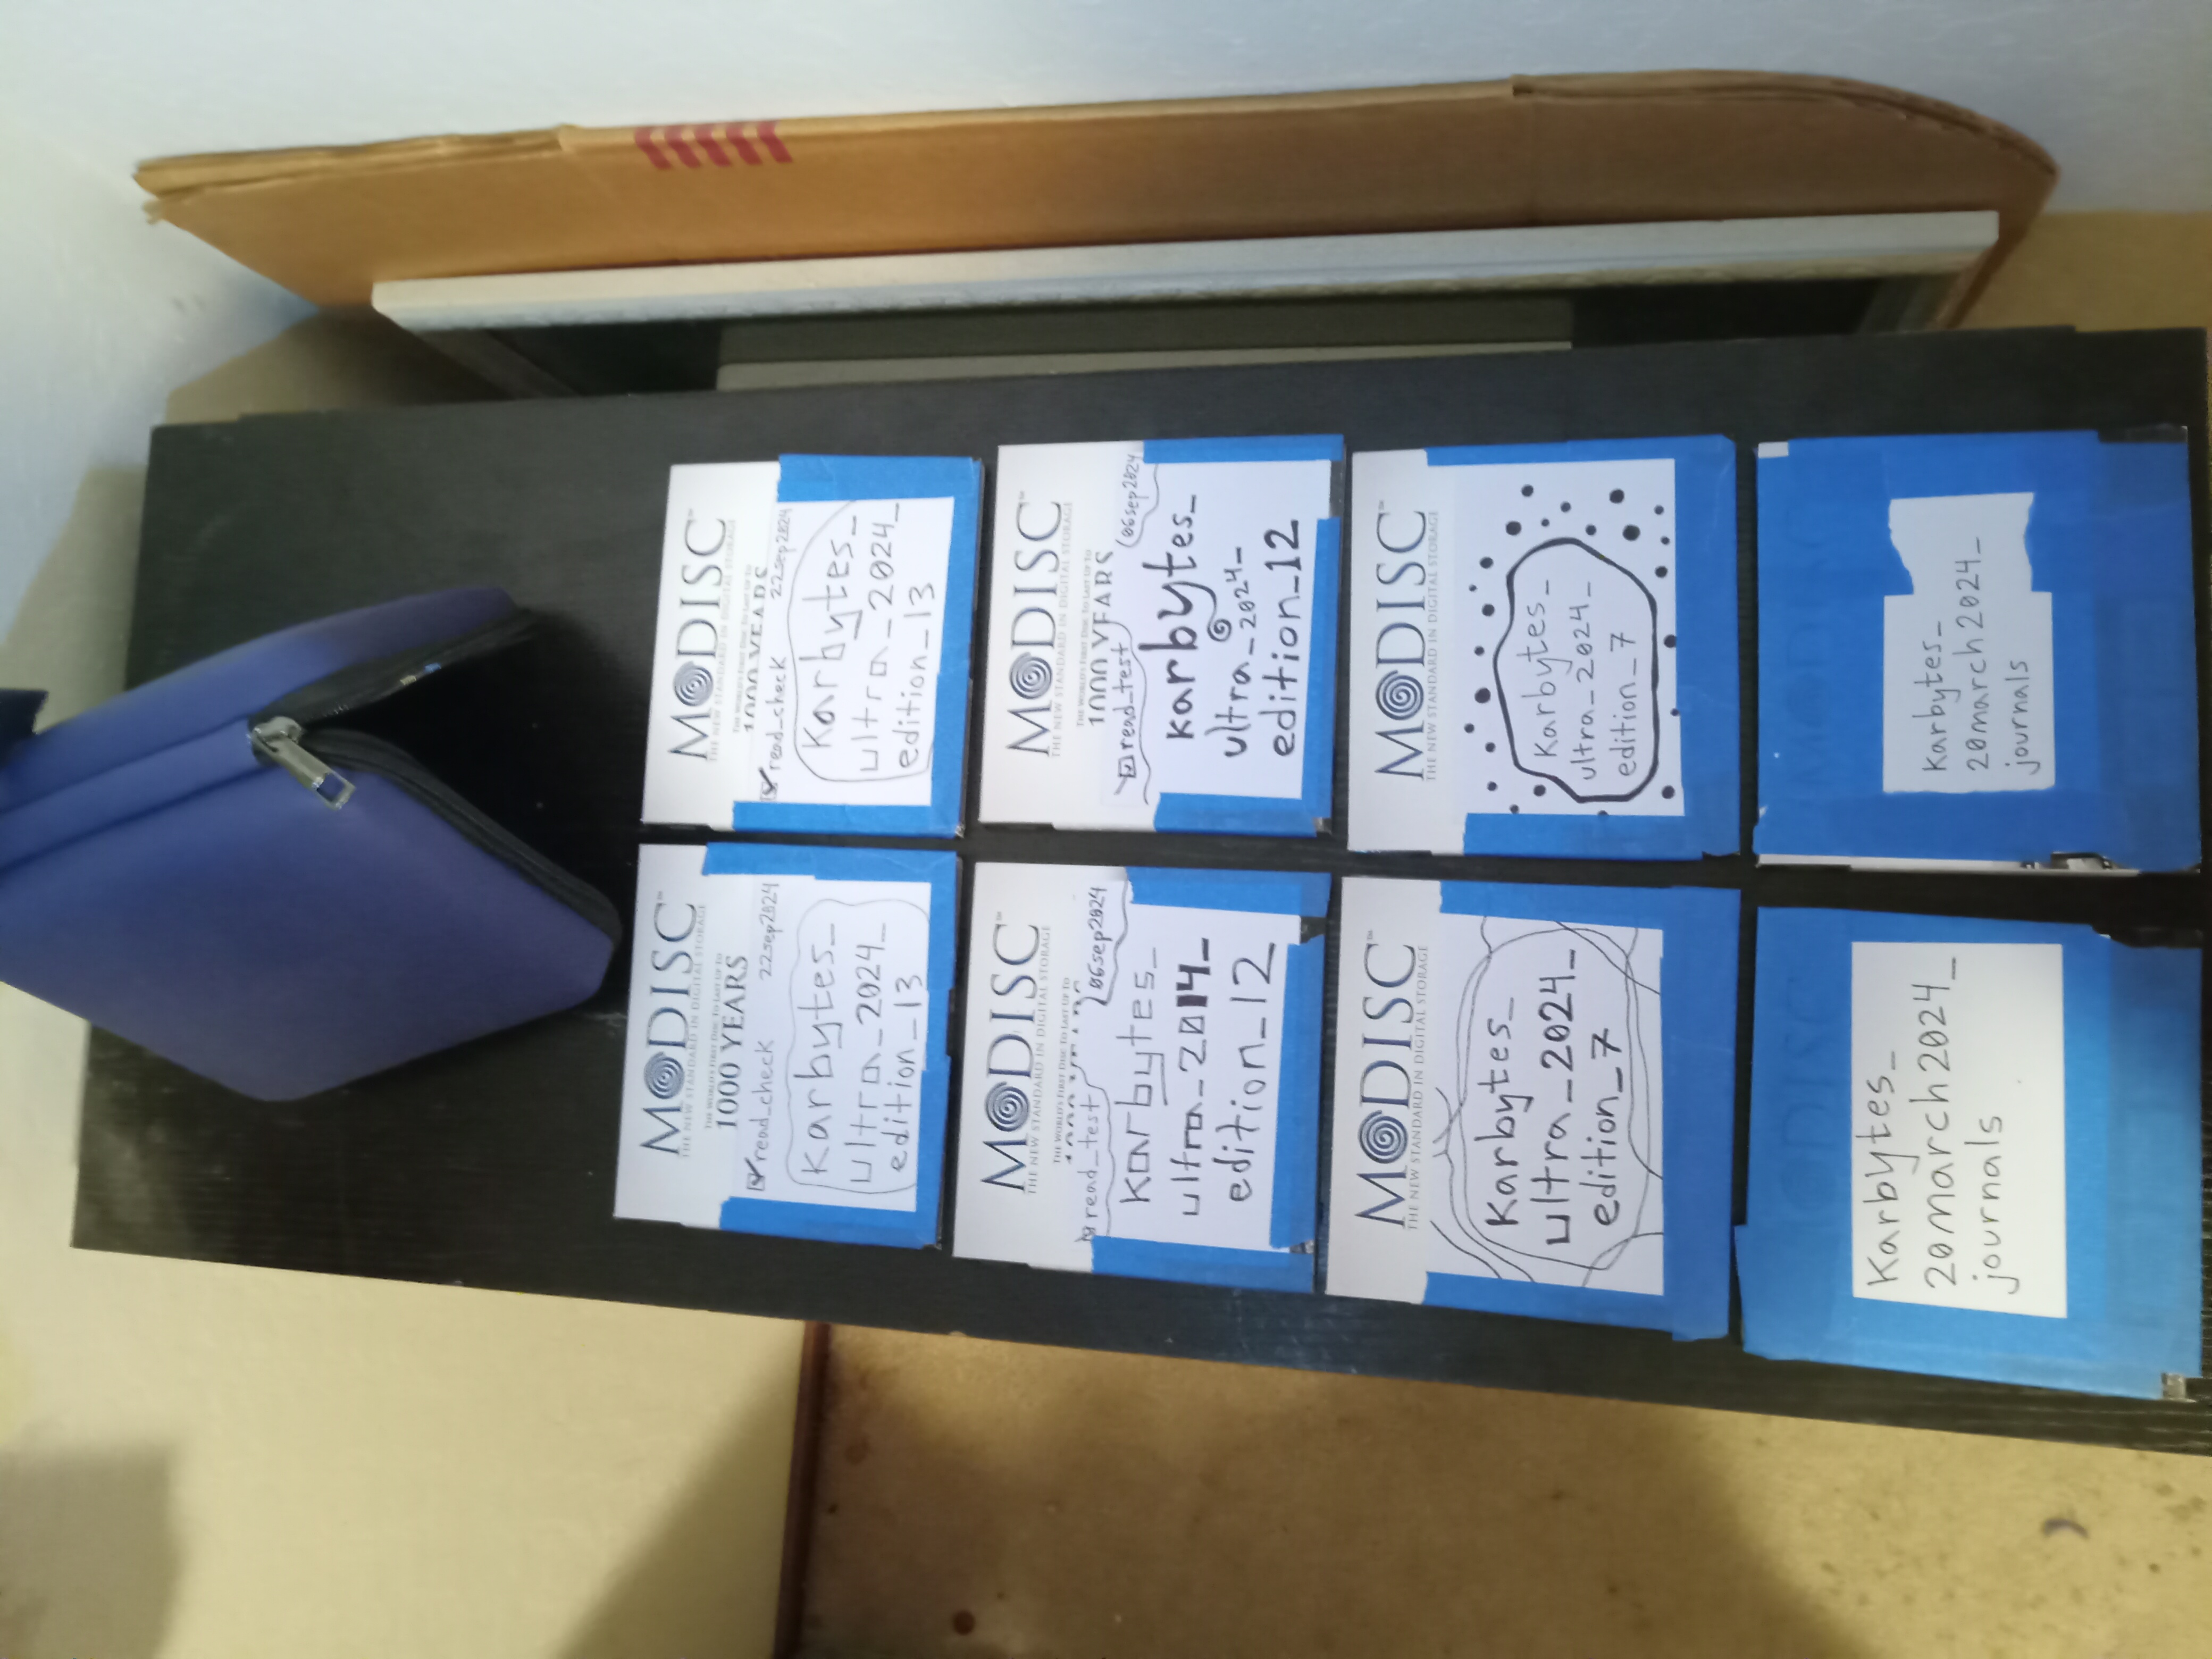 MODISC™
THE NEW STANDARD IN DIGITAL STORAGE
THE WORLD'S FIRST DISC TO LAST UP TO
1000 YEARS
read_check 22sep2024
karbytes_
ultra_2024_
edition_13
MODISC™
THE NEW STANDARD IN DIGITAL STORAGE
THE WORLD'S FIRST DISC TO LAST UP TO
1000 YEARS
read_check 22sep2024
karbytes_
ultra_2024_
edition_13
MODISC™
THE NEW STANDARD IN DIGITAL STORAGE
THE WORLD'S FIRST DISC TO LAST UP TO
read_test 06sep2024
karbytes_
ultra_2014_
edition_12
MODISC™
THE NEW STANDARD IN DIGITAL STORAGE
THE WORLD'S FIRST DISC TO LAST UP TO
1000 YEARS
read_test 06sep2024
karbytes_
ultra_2024_
edition_12
MODISC™
THE NEW STANDARD IN DIGITAL STORAGE
karbytes_
ultra_2024_
edition_7
MODISC™
THE NEW STANDARD IN DIGITAL STORAGE
karbytes_
ultra_2024_
edition_7
MODISC
karbytes_
20march2024_
journals
MODISC
karbytes_
20march2024_
journals